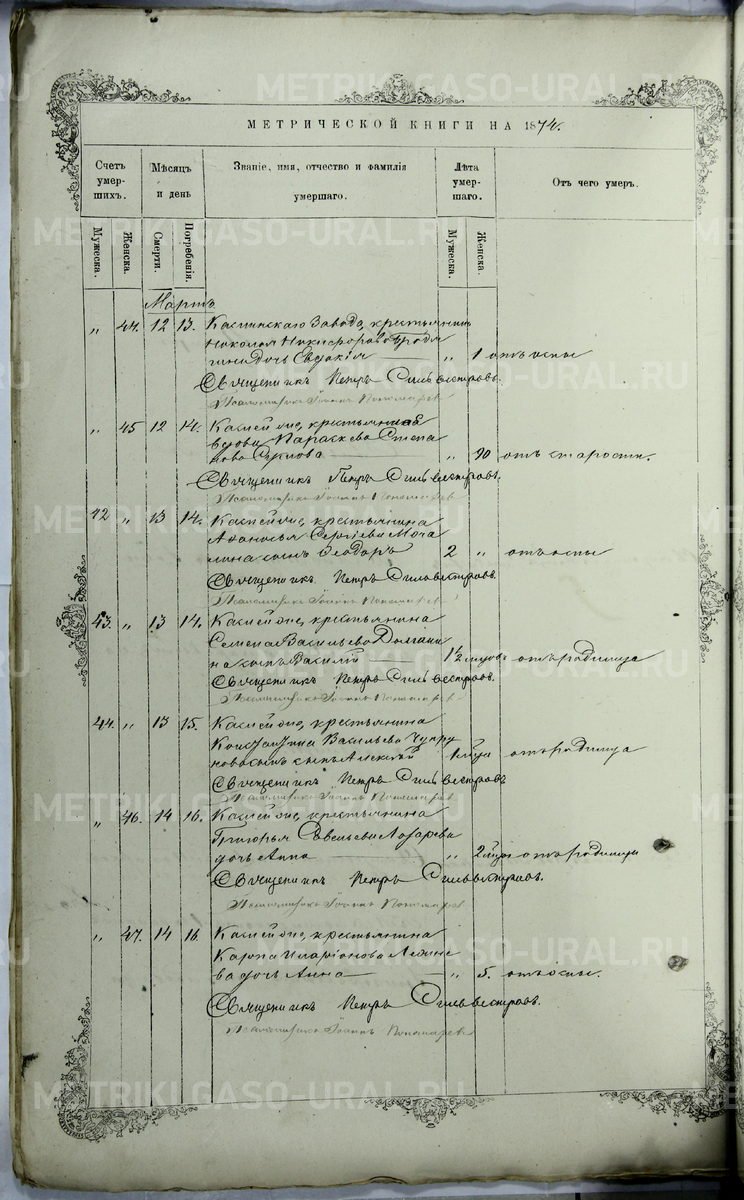 МЕТРИЧЕСКОЙ КНИГИ НА 1874.
Счетъ умер-шихъ.
Мѣсяцъ и день
Званіе, имя, отчество и фамилія умершаго.
Лѣта умер-шаго.
Отъ чего умеръ.
Мужеска.
Женска.
Смерти.
Погребенія.
Мужеска.
Женска.
Мартъ
„ 44. 12 13. Каслинскаго Завода, крестьянина
Николая Никифорова
дочь Евдокія „ 1 отъ оспы
Священникъ Петръ Сильвестровъ.
Псаломщикъ Іоаннъ Пономаревъ
„ 45 12 14. крестьянская
вдова Параскева Степа
нова „ 70 отъ старости.
Священникъ Петръ Сильвестровъ.
Псаломщикъ Іоаннъ Пономаревъ
42 „ 13 14. крестьянина
Аѳанасья Сергіева Моча
лина сынъ Ѳеодоръ 2 „ отъ оспы
Священникъ Петръ Сильвестровъ.
Псаломщикъ Іоаннъ Пономаревъ
43. „ 13 14. крестьянина
Семена Васильева Долгани
на сынъ Василій 1½ отъ родимца
Священникъ Петръ Сильвестровъ.
Псаломщикъ Іоаннъ Пономаревъ
44. „ 13 15. крестьянина
Константина Васильева Чупру
нова сынъ Алексѣй 1 отъ родимца
Священникъ Петръ Сильвестровъ
Псаломщикъ Іоаннъ Пономаревъ
„ 46. 14 16. крестьянина
Григорья Савельева
дочь Анна „ 2 отъ родимца
Священникъ Петръ Сильвестровъ.
Псаломщикъ Іоаннъ Пономаревъ
„ 47. 14 16. крестьянина
Карпа Иларіонова
ва дочь Анна „ 5. отъ оспы.
Священникъ Петръ Сильвестровъ.
Псаломщикъ Іоаннъ Пономаревъ
METRIKI.GASO-URAL.RU